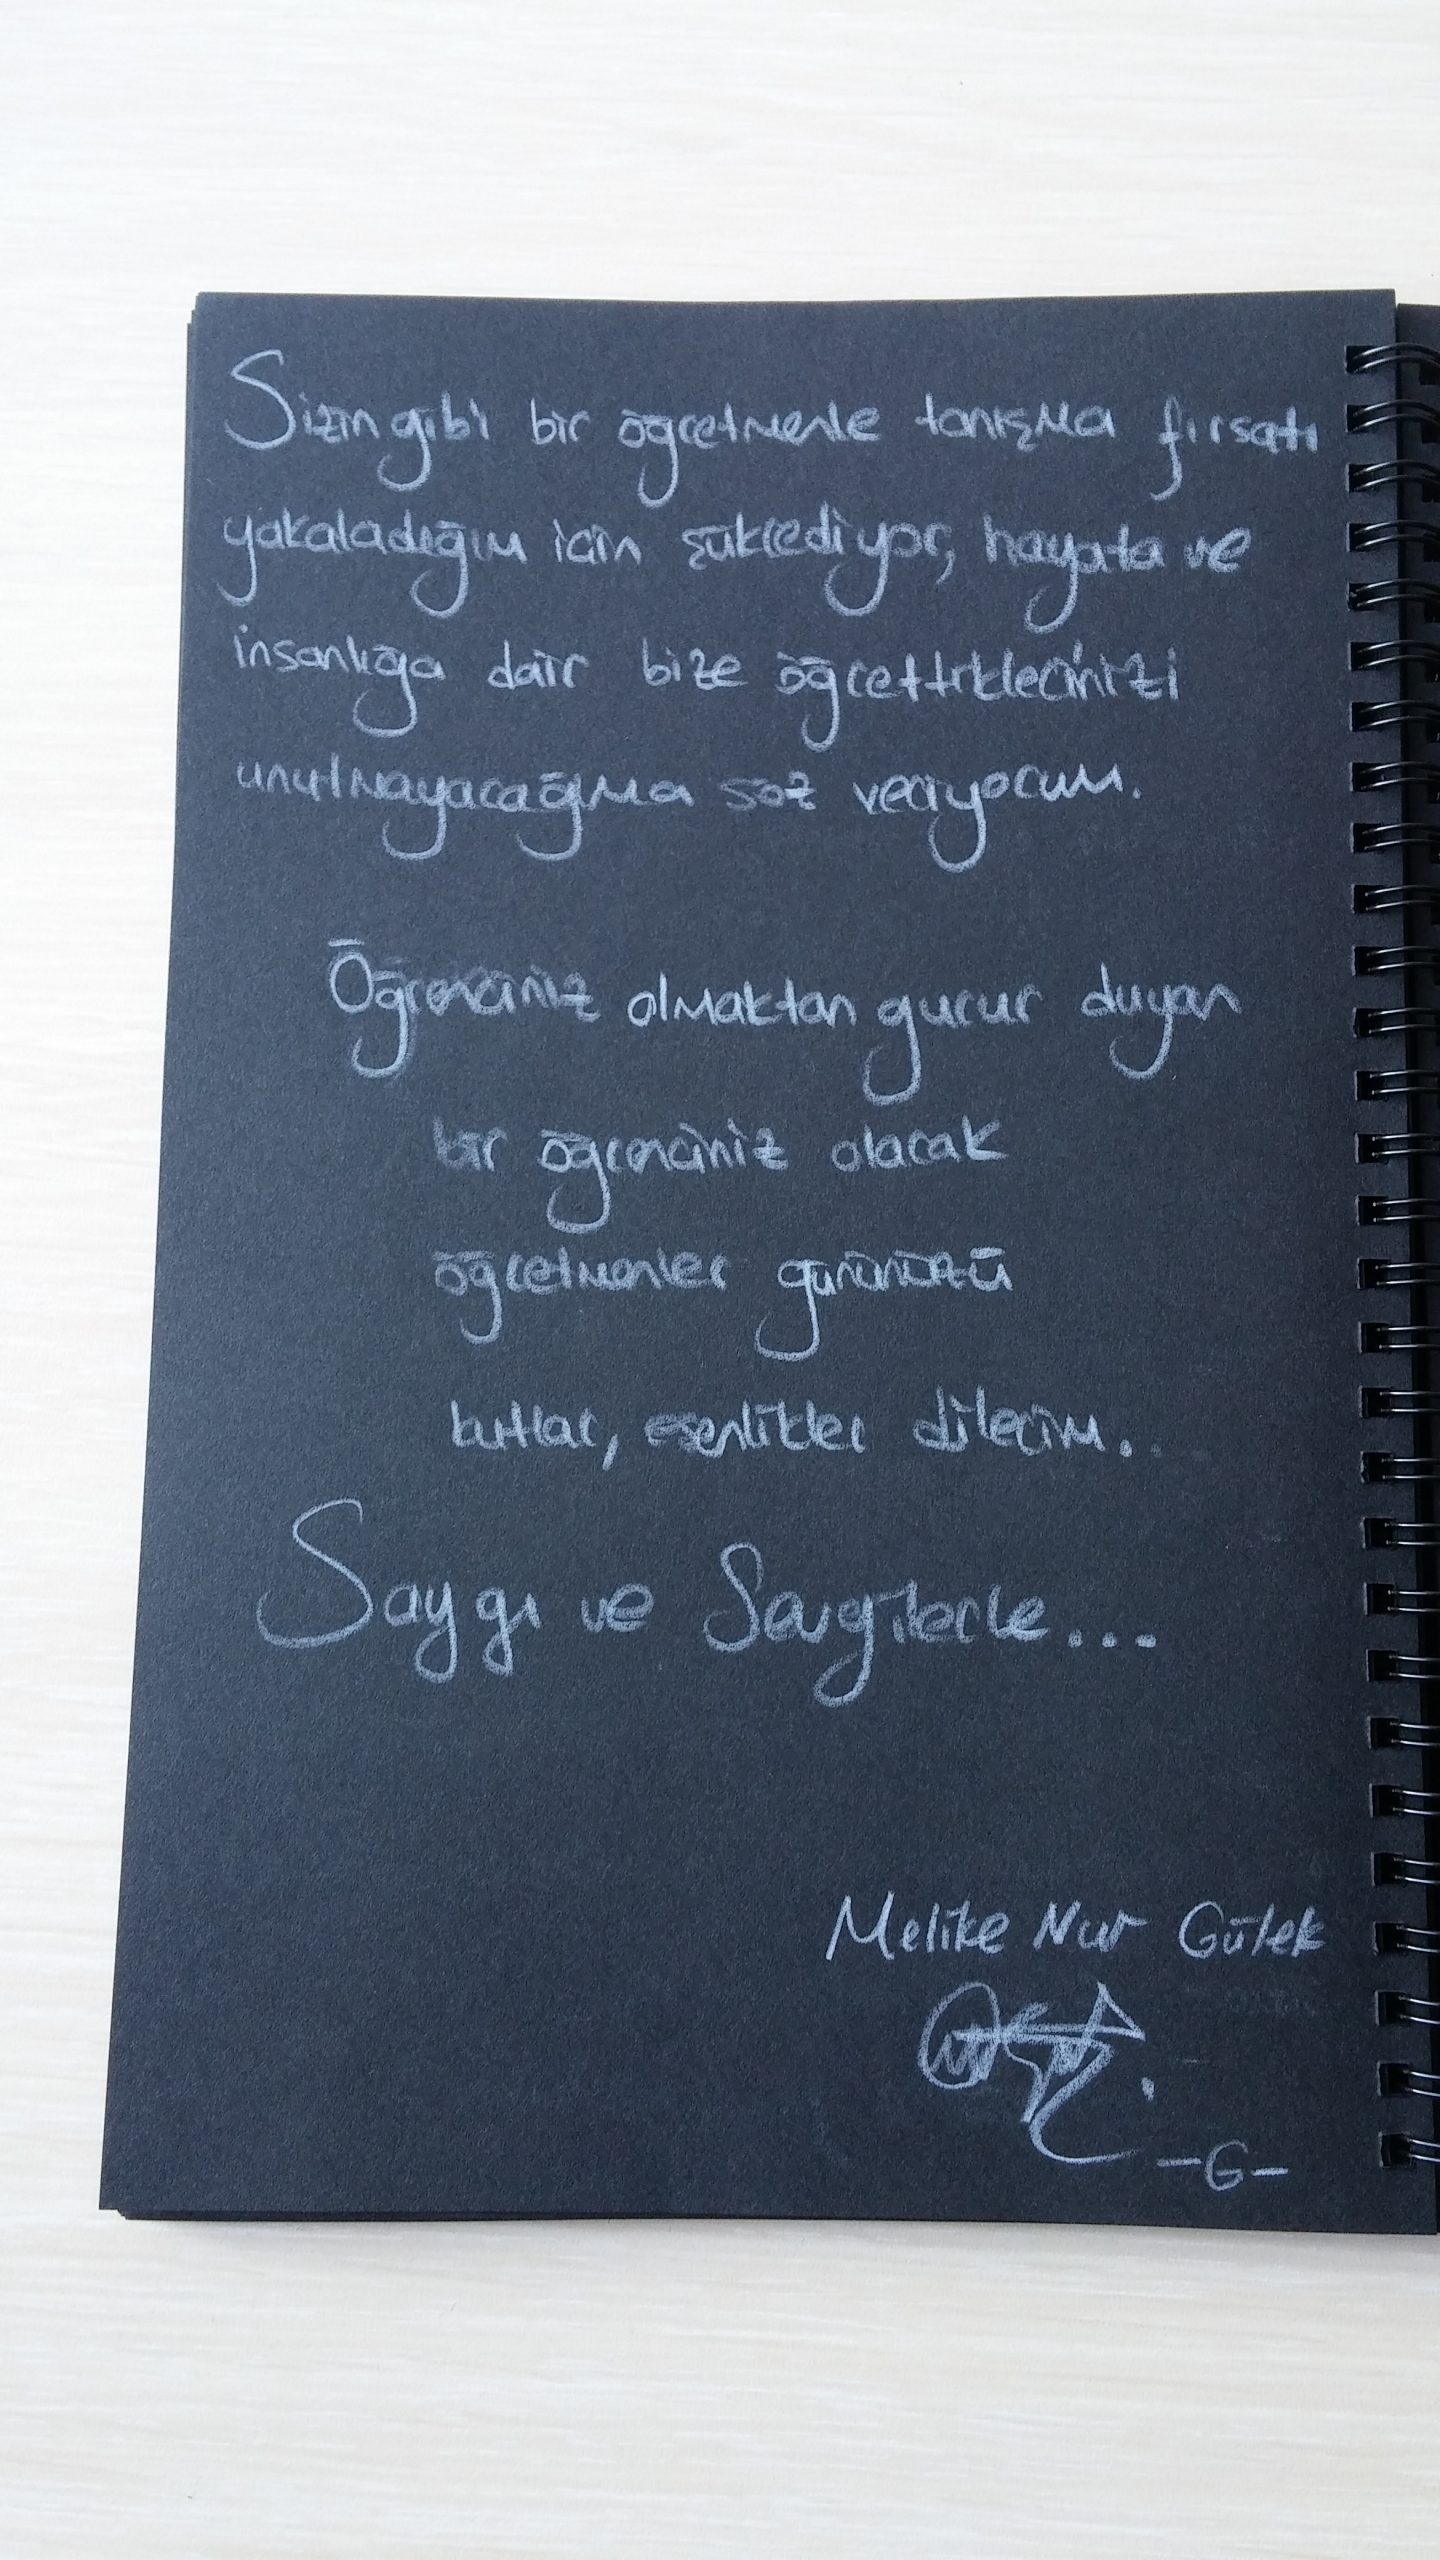 Sizin gibi bir öğretmenle tanışma fırsatı
yakaladığım için şükrediyor, hayata ve
insanlığa dair bize öğrettiklerinizi
unutmayacağıma söz veriyorum.
Öğrenciniz olmaktan gurur duyan
bir öğrenciniz olarak
öğretmenler gününüzü
kutlar, esenlikler dilerim...
Saygı ve Sevgilerle...
Melike Nur Gülek
-G-